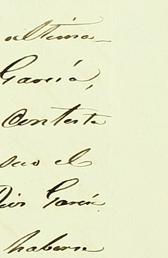 ultima
García,
contesta
seco el
Dios García.
haberse